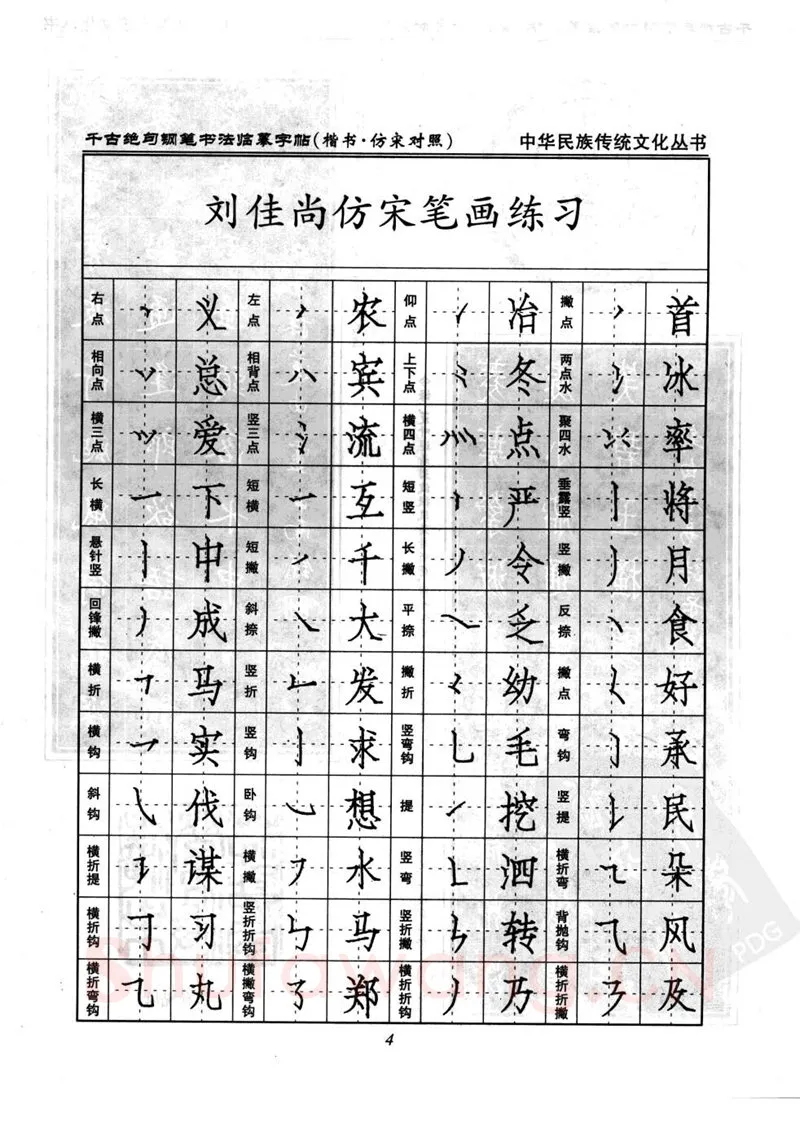 千古绝句钢笔书法临摹字帖(楷书·仿宋对照) 中华民族传统文化丛书
刘佳尚仿宋笔画练习
右点 丶 义 左点 农 仰点 冶 撇点 首
相向点 总 相背点 宾 上下点 冬 两点水 冫 冰
横三点 爱 竖三点 氵 流 横四点 灬 点 聚四水 率
长横 一 下 短横 一 互 短竖 严 垂露竖 丨 将
悬针竖 丨 中 短撇 千 长撇 丿 令 竖撇 丿 月
回锋撇 丿 成 斜捺 ㇏ 大 平捺 ㇏ 乏 反捺 丶 食
横折 ㇕ 马 竖折 ㇗ 发 撇折 ㇜ 幼 撇点 ㇛ 好
横钩 ㇖ 实 竖钩 亅 求 竖弯钩 乚 毛 弯钩 ㇁ 承
斜钩 ㇂ 伐 卧钩 ㇃ 想 提 ㇀ 挖 竖提 ㇙ 民
横折提 ㇊ 谋 横撇 ㇇ 水 竖弯 ㇄ 泗 横折弯 ㇍ 朵
横折钩 ㇆ 习 竖折折钩 ㇉ 马 竖折撇 ㇞ 转 背抛钩 ⺄ 风
横折弯钩 乙 丸 横撇弯钩 ㇌ 郑 横折折钩 丿 乃 横折折撇 ㇋ 及
4
Shufawang.cn
PDG